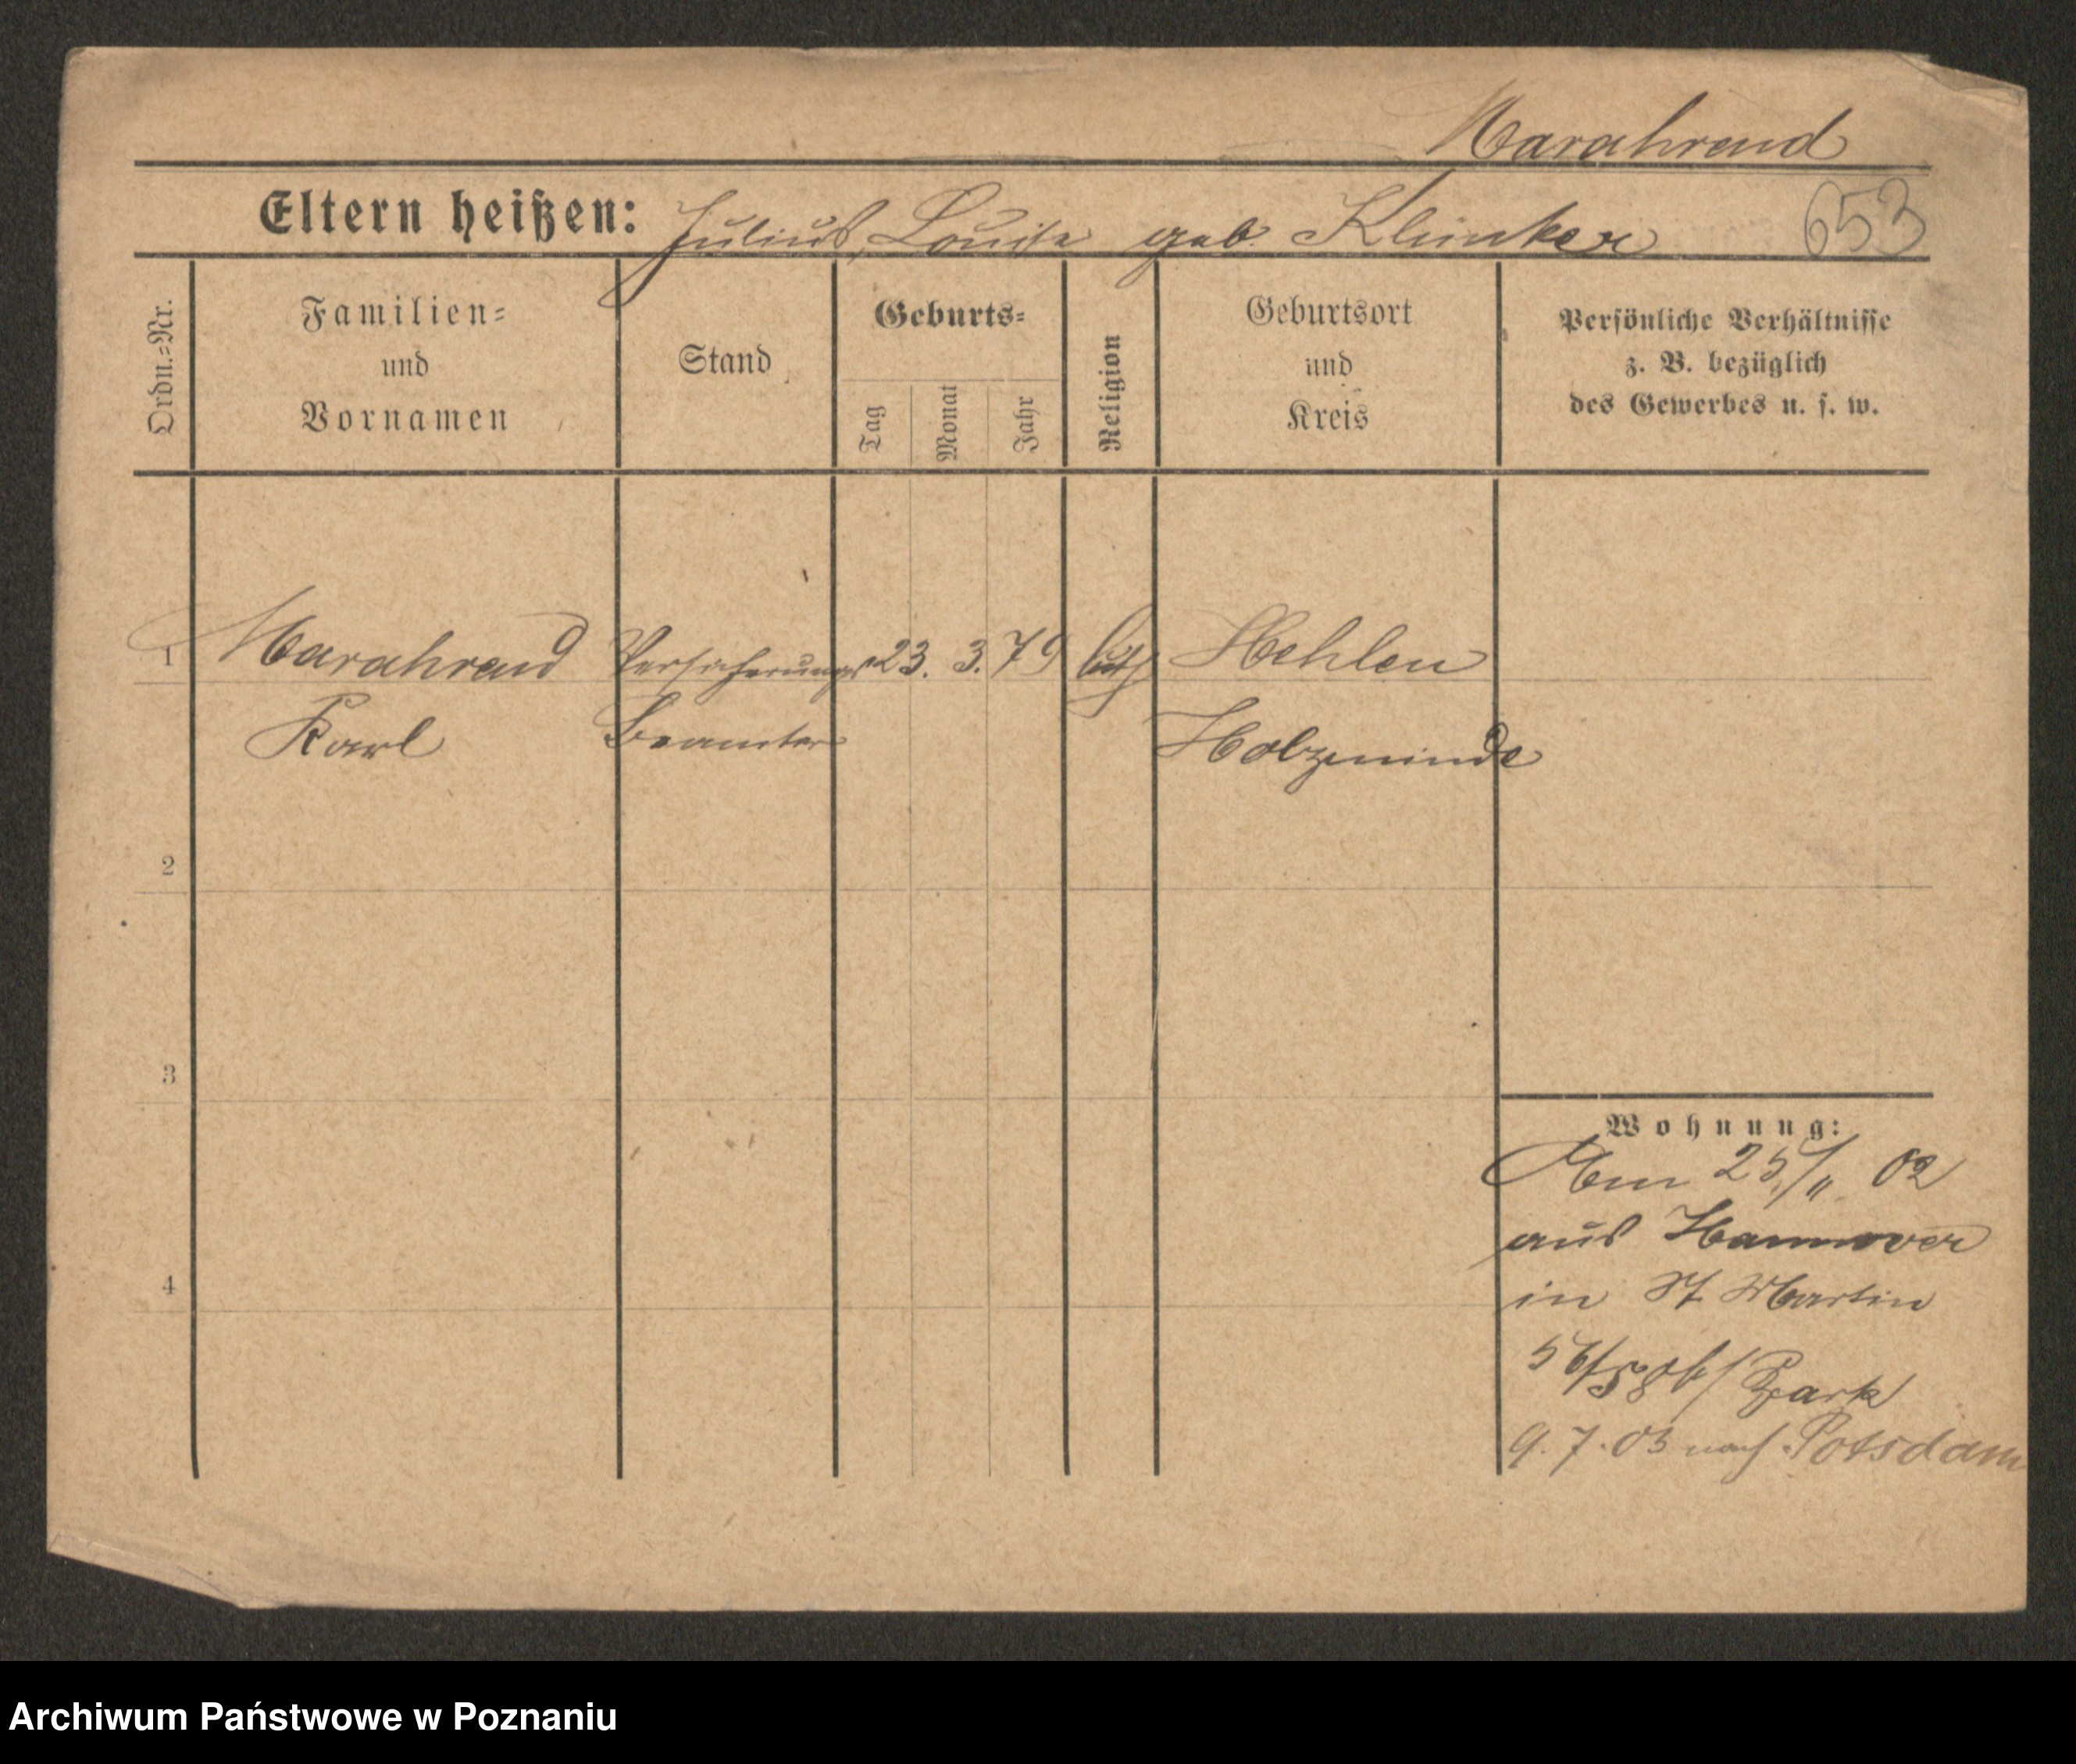 Marahrend
Eltern heißen: Julius, Louise geb. Klinker
653
Ordn.=Nr.
Familien=
und
Vornamen
Stand
Geburts=
Tag
Monat
Jahr
Religion
Geburtsort
und
Kreis
Persönliche Verhältnisse
z. B. bezüglich
des Gewerbes u. s. w.
1 Marahrend Versicherungs 23. 3. 79 luth Hehlen
Karl Beamter Holzminde
2
3
4
Wohnung:
Am 25/11 02
aus Hannover
in St Martin
56/58 b/ Park
9. 7. 03 nach Potsdam
Archiwum Państwowe w Poznaniu